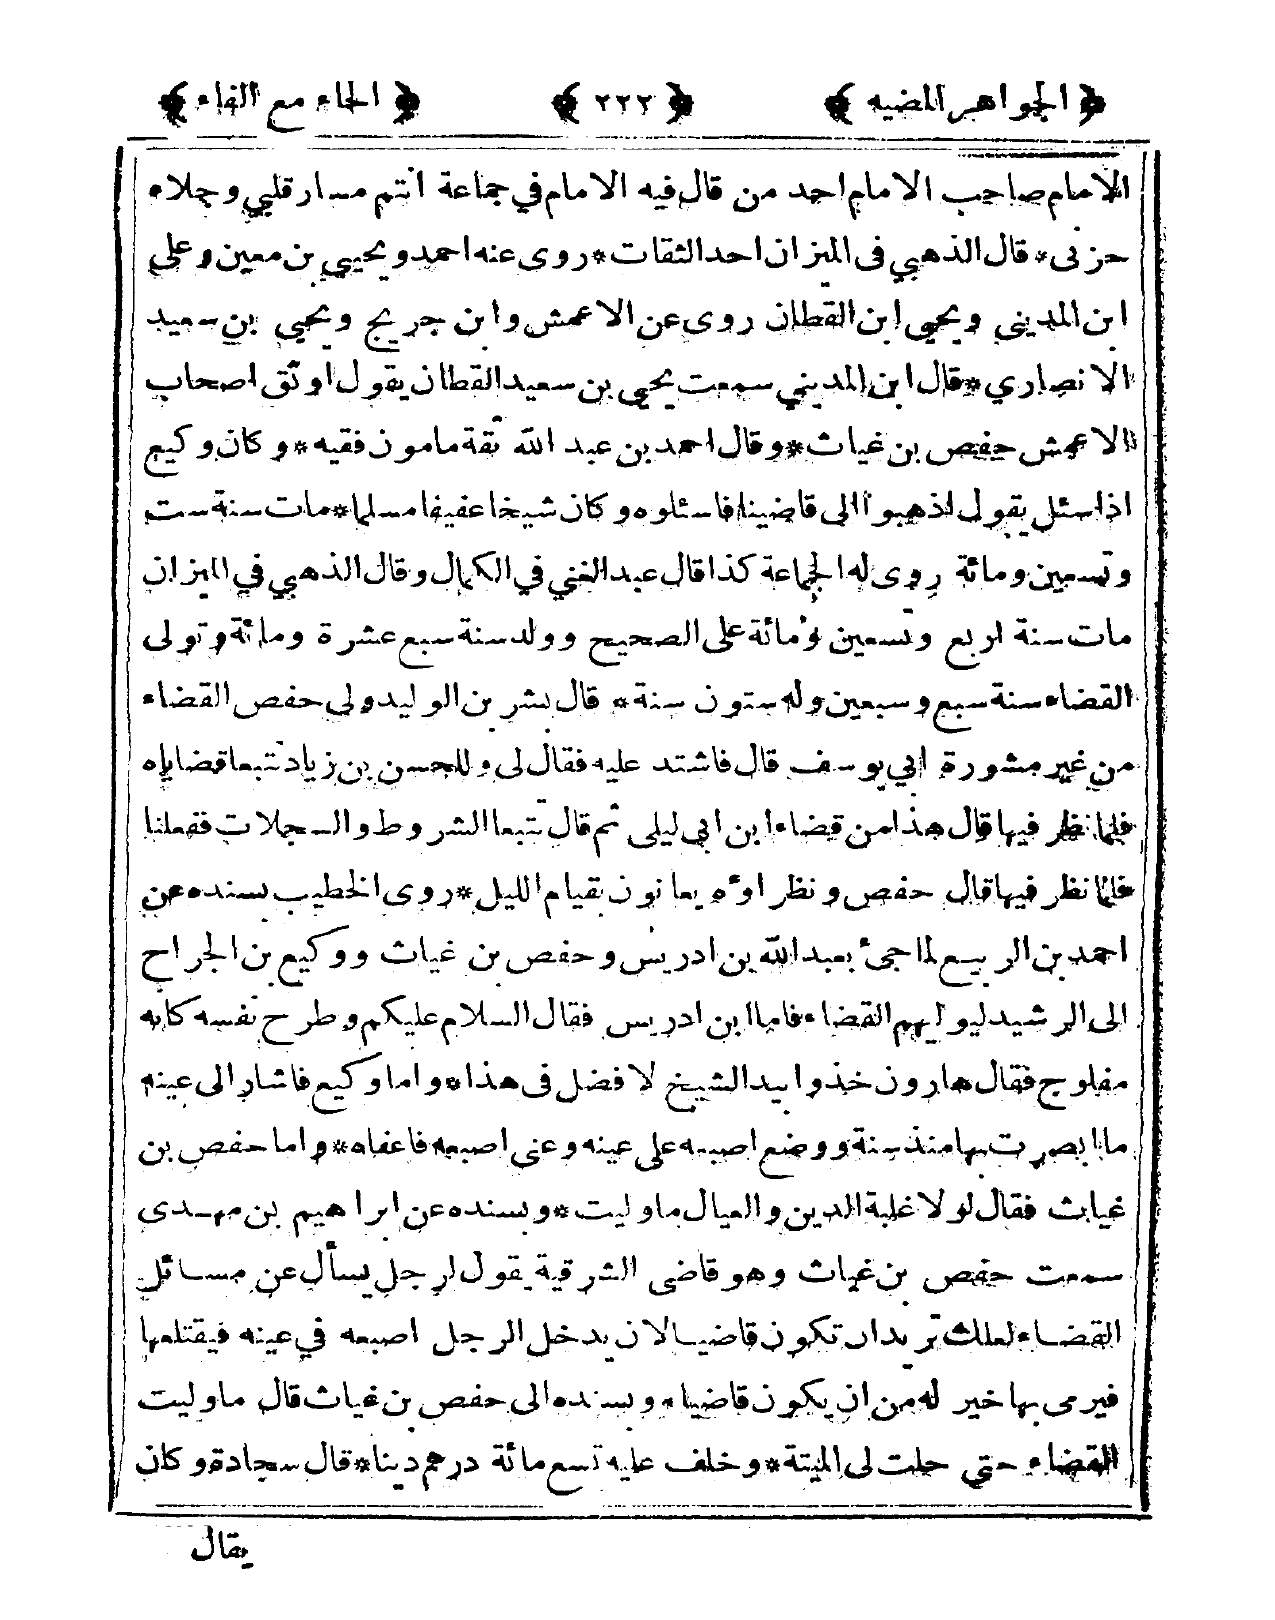 ﴿ الجواهر المضيه ﴾ ﴿ ٢٢٢ ﴾ ﴿ الحاء مع الفاء ﴾
الامام صاحب الامام احد من قال فيه الامام في جماعة انتم مسار قلبي وجلاء
حزنى * قال الذهبي فى الميزان احد الثقات * روى عنه احمد ويحيى بن معين وعلى
ابن المديني ويحيى ابن القطان روى عن الاعمش وابن جريج ويحيى بن سعيد
الانصاري * قال ابن المديني سمعت يحيى بن سعيد القطان يقول اوثق اصحاب
الاعمش حفص بن غياث * وقال احمد بن عبد الله ثقة مامون فقيه * وكان وكيع
اذا سئل يقول اذهبوا الى قاضينا فاسئلوه وكان شيخا عفيفا مسلما * مات سنة ست
وتسعين ومائة روى له الجماعة كذا قال عبد الغني في الكمال وقال الذهبي في الميزان
مات سنة اربع وتسعين ومائة على الصحيح وولد سنة سبع عشرة ومائة وتولى
القضاء سنة سبع وسبعين وله ستون سنة * قال بشر بن الوليد ولى حفص القضاء
من غير مشورة ابي يوسف قال فاشتد عليه فقال لى وللحسن بن زياد تتبعا قضاياه
فلما نظر فيها قال هذا من قضاء ابن ابى ليلى ثم قال تتبعا الشروط والسجلات ففعلنا
فلما نظر فيها قال حفص ونظراؤه يعانون بقيام الليل * روى الخطيب بسنده عن
احمد بن الربيع لما جيء بعبد الله بن ادريس وحفص بن غياث ووكيع بن الجراح
الى الرشيد ليوليهم القضاء فاما ابن ادريس فقال السلام عليكم وطرح نفسه كانه
مفلوج فقال هارون خذوا بيد الشيخ لا فضل فى هذا * واما وكيع فاشار الى عينه
ما ابصرت بها منذ سنة ووضع اصبعه على عينه وعنى اصبعه فاعفاه * واما حفص بن
غياث فقال لولا غلبة الدين والعيال ما وليت * وبسنده عن ابراهيم بن مهدى
سمعت حفص بن غياث وهو قاضى الشرقية يقول لرجل يسأل عن مسائل
القضاء لعلك تريد ان تكون قاضيا لان يدخل الرجل اصبعه في عينه فيقتلعها
فيرمى بها خير له من ان يكون قاضيا * وبسنده الى حفص بن غياث قال ما وليت
القضاء حتى حلت لى الميتة * وخلف عليه تسع مائة درهم دينا * قال سجادة وكان
يقال